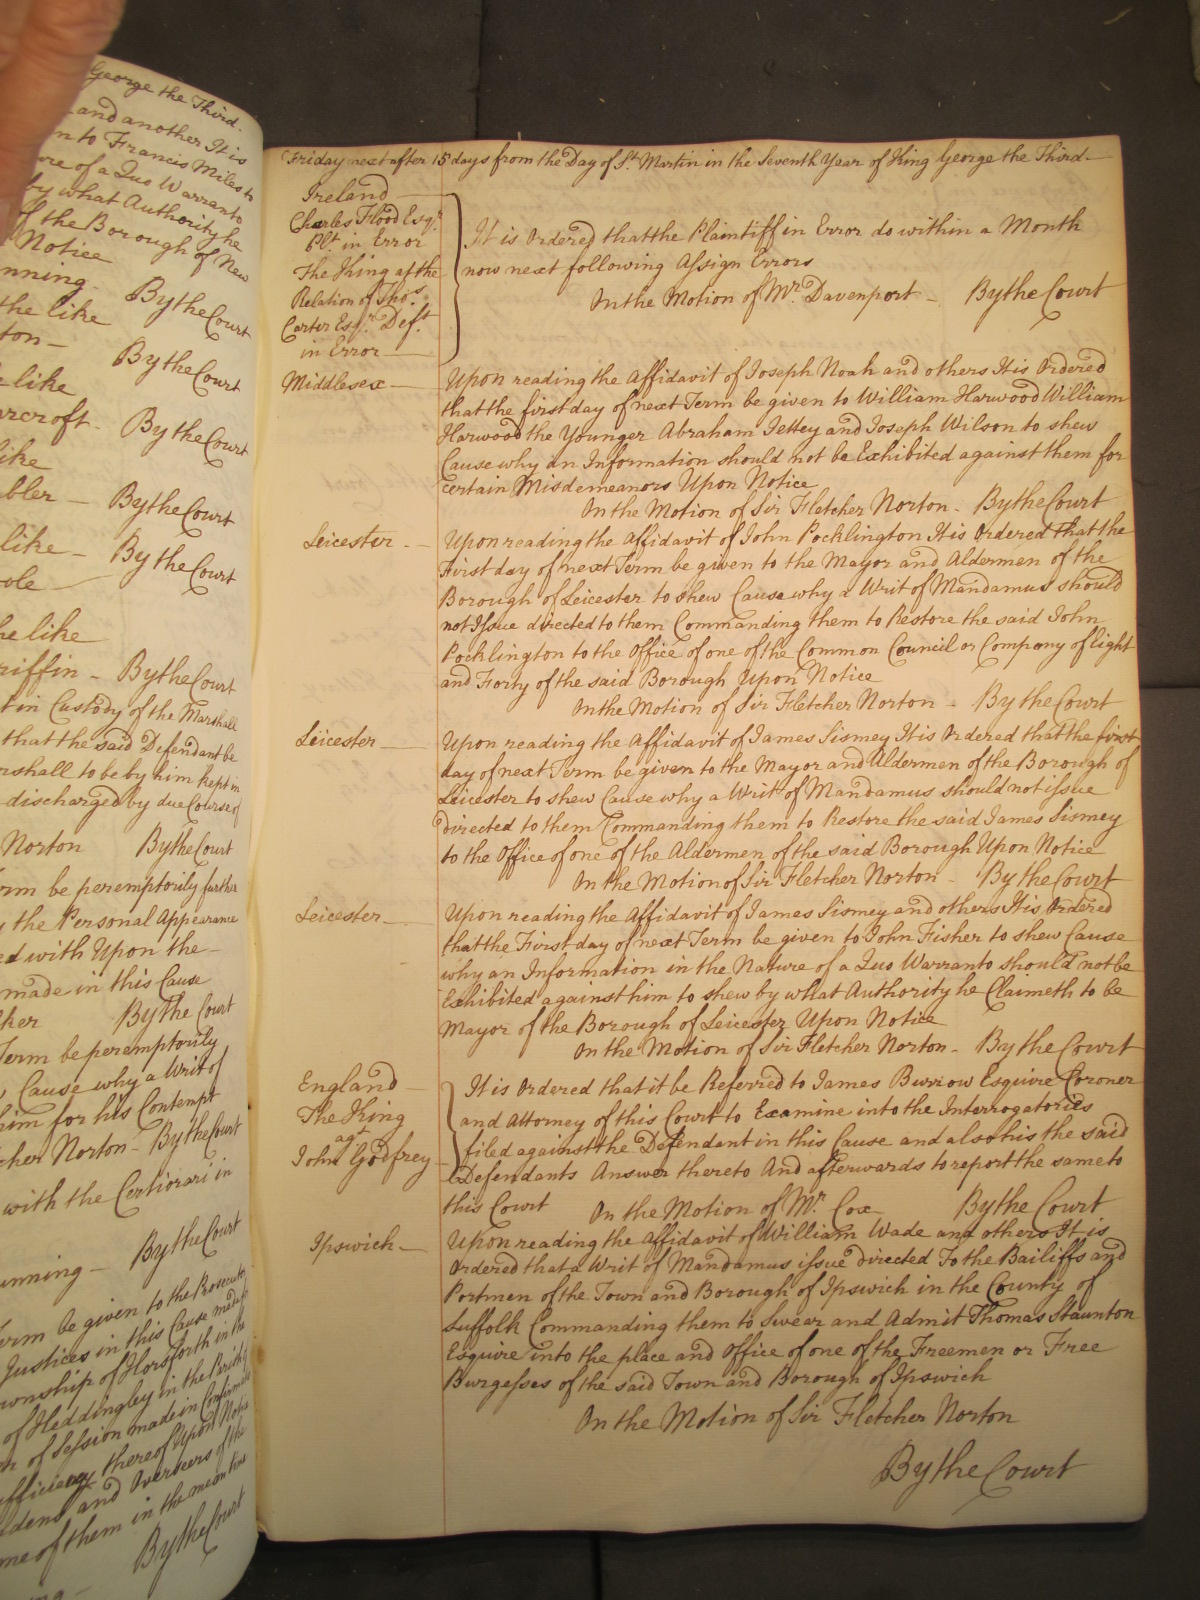 George the Third.
and another It is
to Francis Miles to
of a Quo Warranto
by what Authority he
of the Borough of New
Notice
By the Court
the like
ton
By the Court
like
arcroft. By the Court
like
bler By the Court
like
ole By the Court
the like
riffin By the Court
in Custody of the Marshall
that the said Defendant be
rshall to be by him kept in
discharged by due Course of
Norton By the Court
rm be peremptorily further
the Personal Appearance
ed with Upon the
made in this Cause
ker By the Court
Term be peremptorily
Cause why a Writ of
him for his Contempt
cher Norton By the Court
with the Certiorari in
By the Court
unning
Term be given to the Prosecutor
Justices in this Cause
ownship of Horsforth in the
of Heddingley in the
of Session made in
thereof Upon Notice
dens and Overseers of the
me of them in the mean time
By the Court
Friday next after 15 days from the Day of St. Martin in the Seventh Year of King George the Third
Ireland
Charles Flood Esqr.
Plt. in Error
The King at the
Relation of Thos.
Carter Esqr. Deft.
in Error
It is Ordered that the Plaintiff in Error do within a Month
now next following Assign Errors
On the Motion of Mr. Davenport By the Court
Middlesex
Upon reading the Affidavit of Joseph Noah and others It is Ordered
that the first day of next Term be given to William Harwood William
Harwood the Younger Abraham and Joseph Wilson to shew
Cause why an Information should not be Exhibited against them for
certain Misdemeanors Upon Notice
On the Motion of Sir Fletcher Norton. By the Court
Leicester
Upon reading the Affidavit of John Pocklington It is Ordered that the
First day of next Term be given to the Mayor and Aldermen of the
Borough of Leicester to shew Cause why a Writ of Mandamus should
not Issue directed to them Commanding them to Restore the said John
Pocklington to the Office of one of the Common Council or Company of Eight
and Forty of the said Borough Upon Notice
On the Motion of Sir Fletcher Norton By the Court
Leicester
Upon reading the Affidavit of James Sismey It is Ordered that the first
day of next Term be given to the Mayor and Aldermen of the Borough of
Leicester to shew Cause why a Writ of Mandamus should not issue
directed to them Commanding them to Restore the said James Sismey
to the Office of one of the Aldermen of the said Borough Upon Notice
On the Motion of Sir Fletcher Norton By the Court
Leicester
Upon reading the Affidavit of James Sismey and others It is Ordered
that the First day of next Term be given to John Fisher to shew Cause
why an Information in the Nature of a Quo Warranto should not be
Exhibited against him to shew by what Authority he Claimeth to be
Mayor of the Borough of Leicester Upon Notice
On the Motion of Sir Fletcher Norton By the Court
England
The King
agt.
John Godfrey
It is Ordered that it be Referred to James Burrow Esquire Coroner
and Attorney of this Court to Examine into the Interrogatories
filed against the Defendant in this Cause and also his the said
Defendants Answer thereto And afterwards to report the same to
this Court On the Motion of Mr. Cox By the Court
Ipswich
Upon reading the Affidavit of William Wade and others It is
Ordered that a Writ of Mandamus issue directed To the Bailiffs and
Portmen of the Town and Borough of Ipswich in the County of
Suffolk Commanding them to Swear and Admit Thomas Staunton
Esquire into the place and Office of one of the Freemen or Free
Burgesses of the said Town and Borough of Ipswich
On the Motion of Sir Fletcher Norton
By the Court